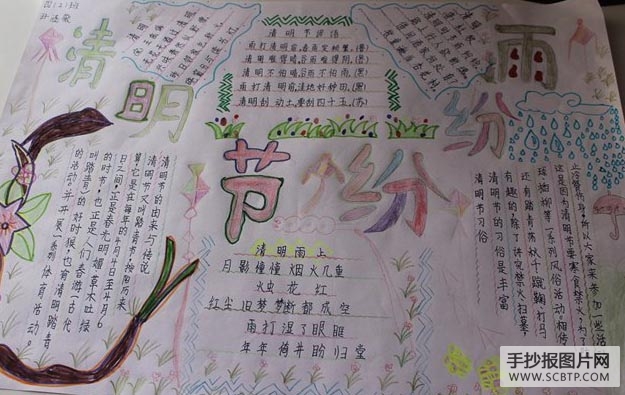 四(2)班
清明
节
雨纷纷
清明
清明节谚语
雨打清明前,春雨定频繁。(鲁)
清明难得晴,谷雨难得阴。(鲁)
清明不怕晴,谷雨不怕雨。(黑)
雨打清明前,洼地好种田。(黑)
清明刮动土,要刮四十五。(苏)
清明节的由来与传说
清明节又叫踏青节,按阳历来
算,它是在每年的4月4日至4月6
日之间,正是春光明媚草木吐绿
的时节,也正是人们春游(古代
叫踏青)的好时候,也有清明踏青
的活动,并开展一系列体育活动。
清明雨上
月影憧憧烟火几重
烛花红
红尘旧梦梦断都成空
雨打湿了眼眶
年年倚井盼归堂
清明节习俗
清明节的习俗是丰富
有趣的,除了讲究禁火扫墓,
还有踏青荡秋千蹴鞠打马
球插柳等一系列风俗活动。相传
这是因为清明节要寒食禁火,为了
所以大家来参加一些活
手抄报图片网
WWW.SCBTP.COM